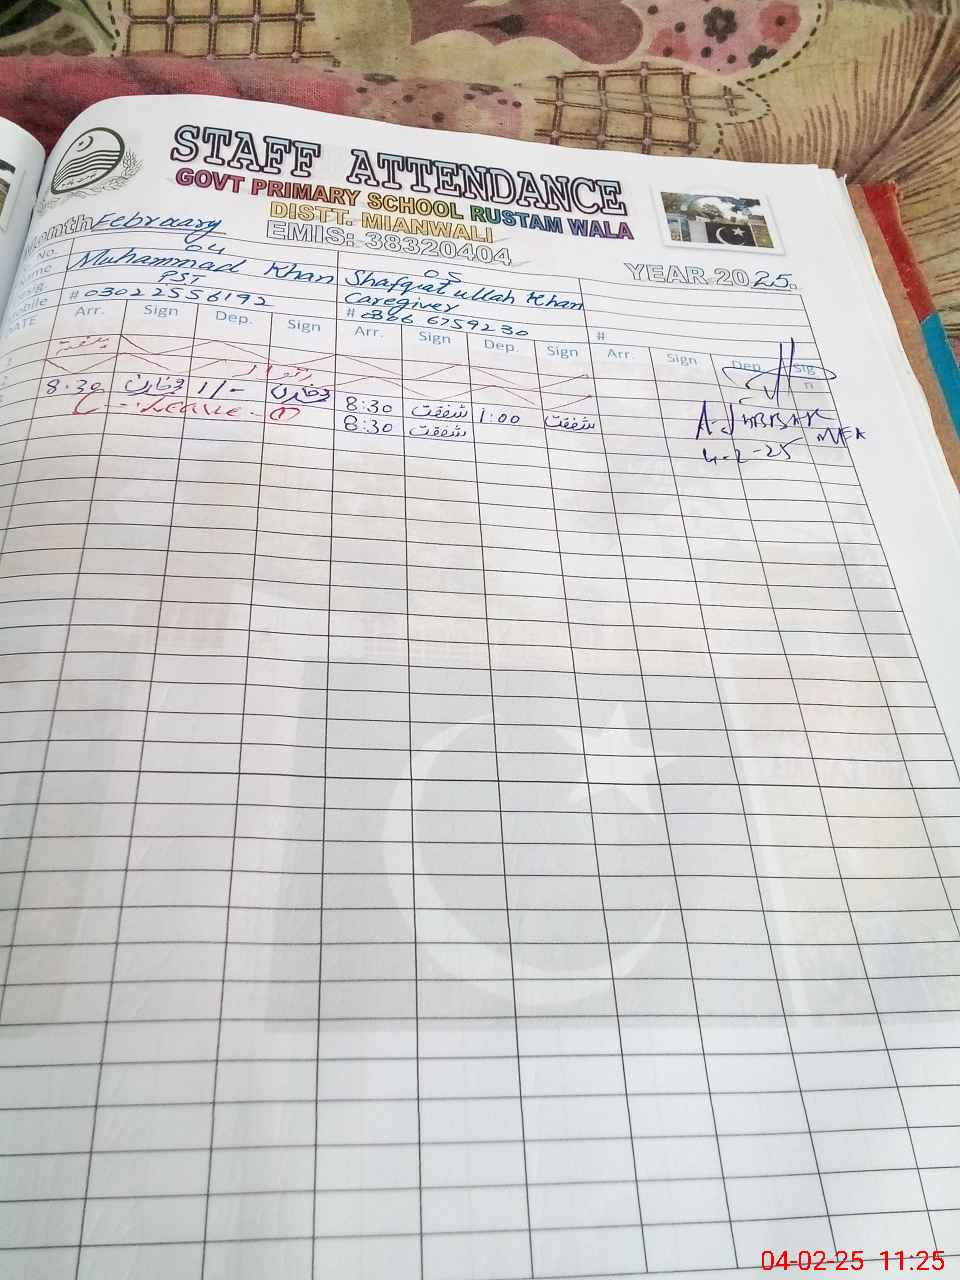 STAFF ATTENDANCE
GOVT PRIMARY SCHOOL RUSTAM WALA
DISTT. MIANWALI
EMIS: 38320404
Month February
YEAR 2025.
No. 04 05
Muhammad Khan Shafqat ullah Khan
PST Caregiver
# 03022556192 # 0306 6759230 #
DATE Arr. Sign Dep. Sign Arr. Sign Dep. Sign Arr. Sign Dep. Sign
ہفتہ
اتوار
8:30 1/- 8:30 شفقت 1:00 شفقت
Leave 1 8:30 شفقت
A. JABBAR
MEA
4-2-25
04-02-25 11:25